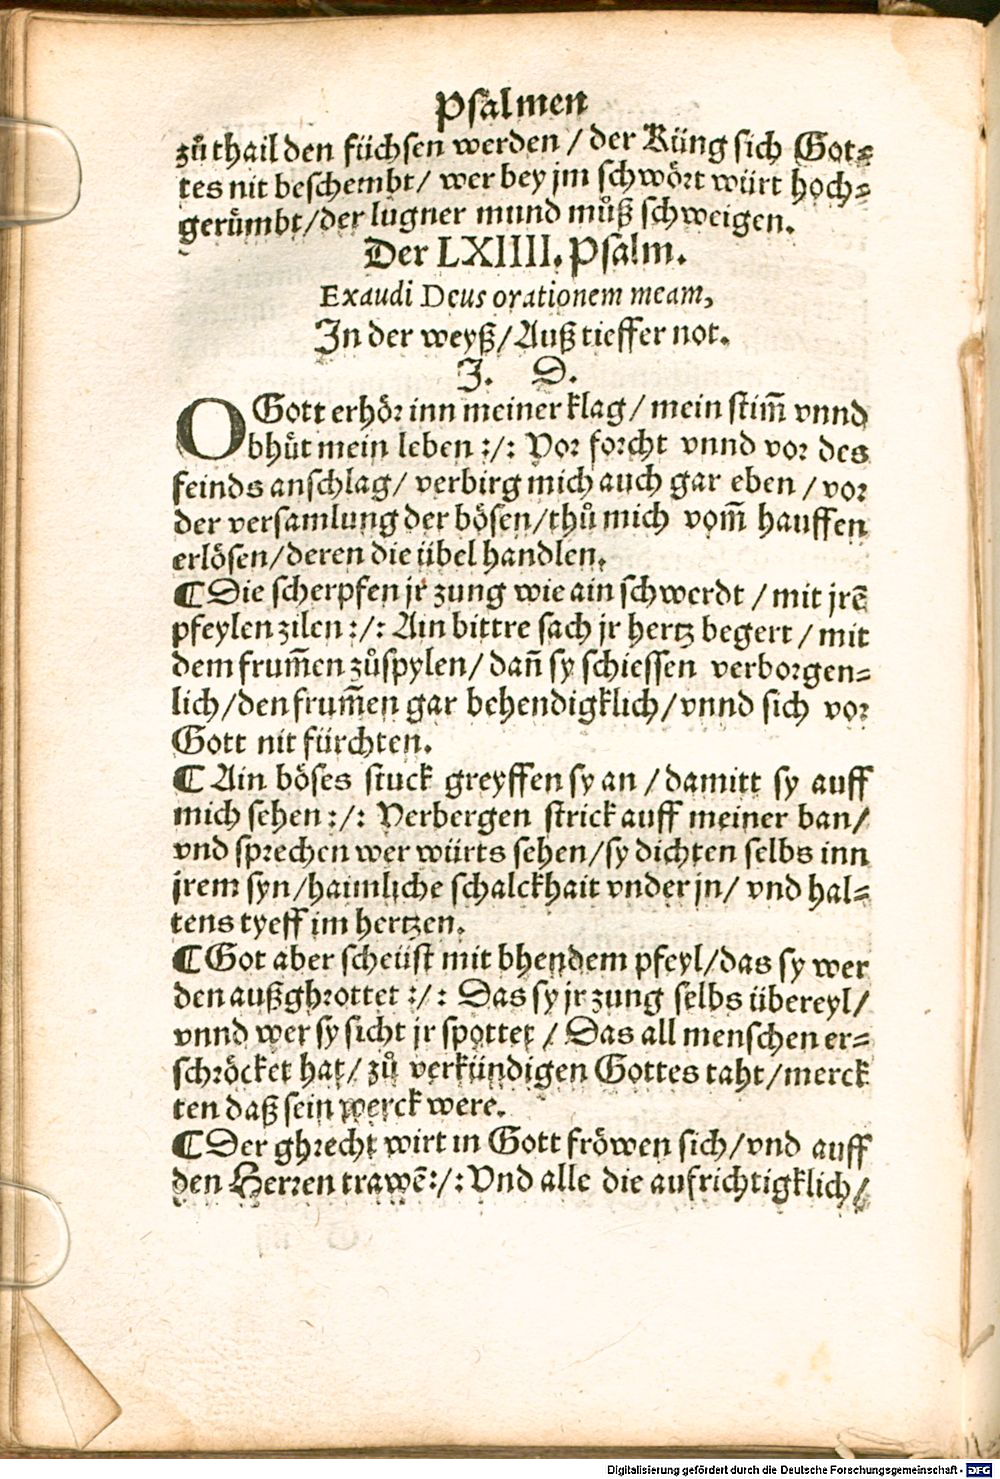 Psalmen
zů thail den füchsen werden / der Küng sich Got⸗
tes nit beschembt / wer bey jm schwört würt hoch⸗
gerůmbt / der lugner mund můß schweigen.
Der LXIIII. Psalm.
Exaudi Deus orationem meam,
In der weyß / Auß tieffer not.
J. D.
O Gott erhör inn meiner klag / mein stim̃ vnnd
bhůt mein leben :/: Vor forcht vnnd vor des
feinds anschlag / verbirg mich auch gar eben / vor
der versamlung der bösen / thů mich vom̃ hauffen
erlösen / deren die übel handlen.
¶ Die scherpfen jr zung wie ain schwerdt / mit jrẽ
pfeylen zilen :/: Ain bittre sach jr hertz begert / mit
dem frum̃en zůspylen / dañ sy schiessen verborgen⸗
lich / den frum̃en gar behendigklich / vnnd sich vor
Gott nit fürchten.
¶ Ain böses stuck greyffen sy an / damitt sy auff
mich sehen :/: Verbergen strick auff meiner ban /
vnd sprechen wer würts sehen / sy dichten selbs inn
jrem syn / haimliche schalckhait vnder jn / vnd hal⸗
tens tyeff im hertzen.
¶ Got aber scheüst mit bhendem pfeyl / das sy wer
den außghrottet :/: Das sy jr zung selbs übereyl /
vnnd wer sy sicht jr spottet / Das all menschen er⸗
schröcket hat / zů verkündigen Gottes taht / merck
ten daß sein werck were.
¶ Der ghrecht wirt in Gott fröwen sich / vnd auff
den Herren trawẽ :/: Vnd alle die aufrichtigklich /
Digitalisierung gefördert durch die Deutsche Forschungsgemeinschaft - DFG